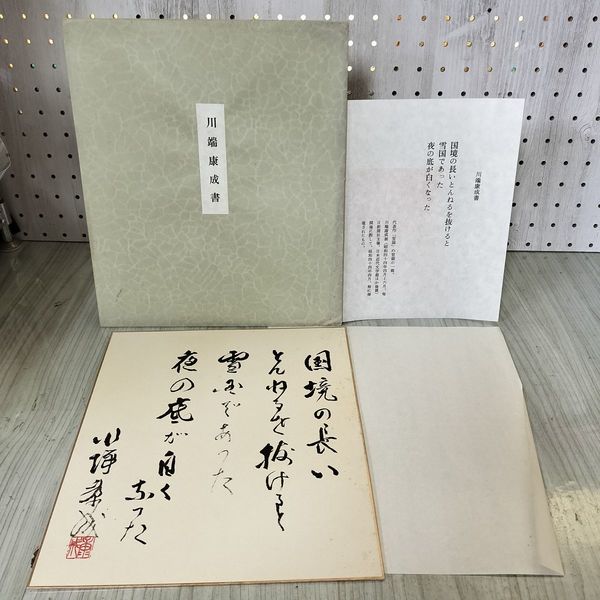 川端康成書
川端康成書
国境の長いとんねるを抜けると
雪国であった
夜の底が白くなった
国境の長い
とんねるを抜けると
雪国であった
夜の底が白く
なった
川端康成